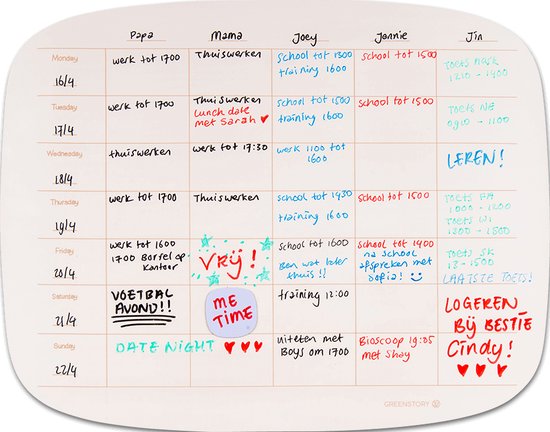 Papa Mama Joey Jennie Jin
Monday
16/4
werk tot 1700
Thuiswerken
school tot 1300
training 1600
school tot 1500
Toets
1210 - 1400
Tuesday
17/4
werk tot 1700
Thuiswerken
Lunch date
met Sarah ♥
school tot 1500
training 1600
school tot 1500
Toets NE
0910 - 1100
Wednesday
18/4
thuiswerken
werk tot 17:30
werk 1100 tot
1600
LEREN!
Thursday
19/4
werk tot 1700
Thuiswerken
school tot 1430
training 1600
school tot 1500
Toets
1000 - 1200
Toets WI
1300 - 1500
Friday
20/4
werk tot 1600
1700 Borrel op
kantoor
VRIJ!
school tot 1600
Ben wat later
thuis!!
school tot 1400
na school
afspreken met
Sofia!
Toets SK
13 - 1500
LAATSTE TOETS!
Saturday
21/4
VOETBAL
AVOND!!
ME
TIME
training 12:00
LOGEREN
BIJ BESTIE
Cindy!
♥ ♥ ♥
Sunday
22/4
DATE NIGHT ♥ ♥ ♥
uiteten met
Boys om 1700
Bioscoop 19:05
met Shay
GREENSTORY